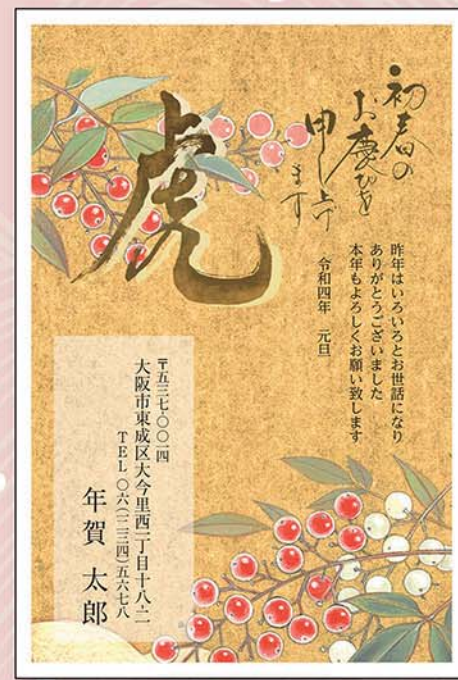 初春の
お慶びを
申し上げ
ます
昨年はいろいろとお世話になり
ありがとうございました
本年もよろしくお願い致します
令和四年 元旦
虎
〒五三七-〇〇一四
大阪市東成区大今里西一丁目十八-二
TEL 〇六(一二三四)五六七八
年賀 太郎